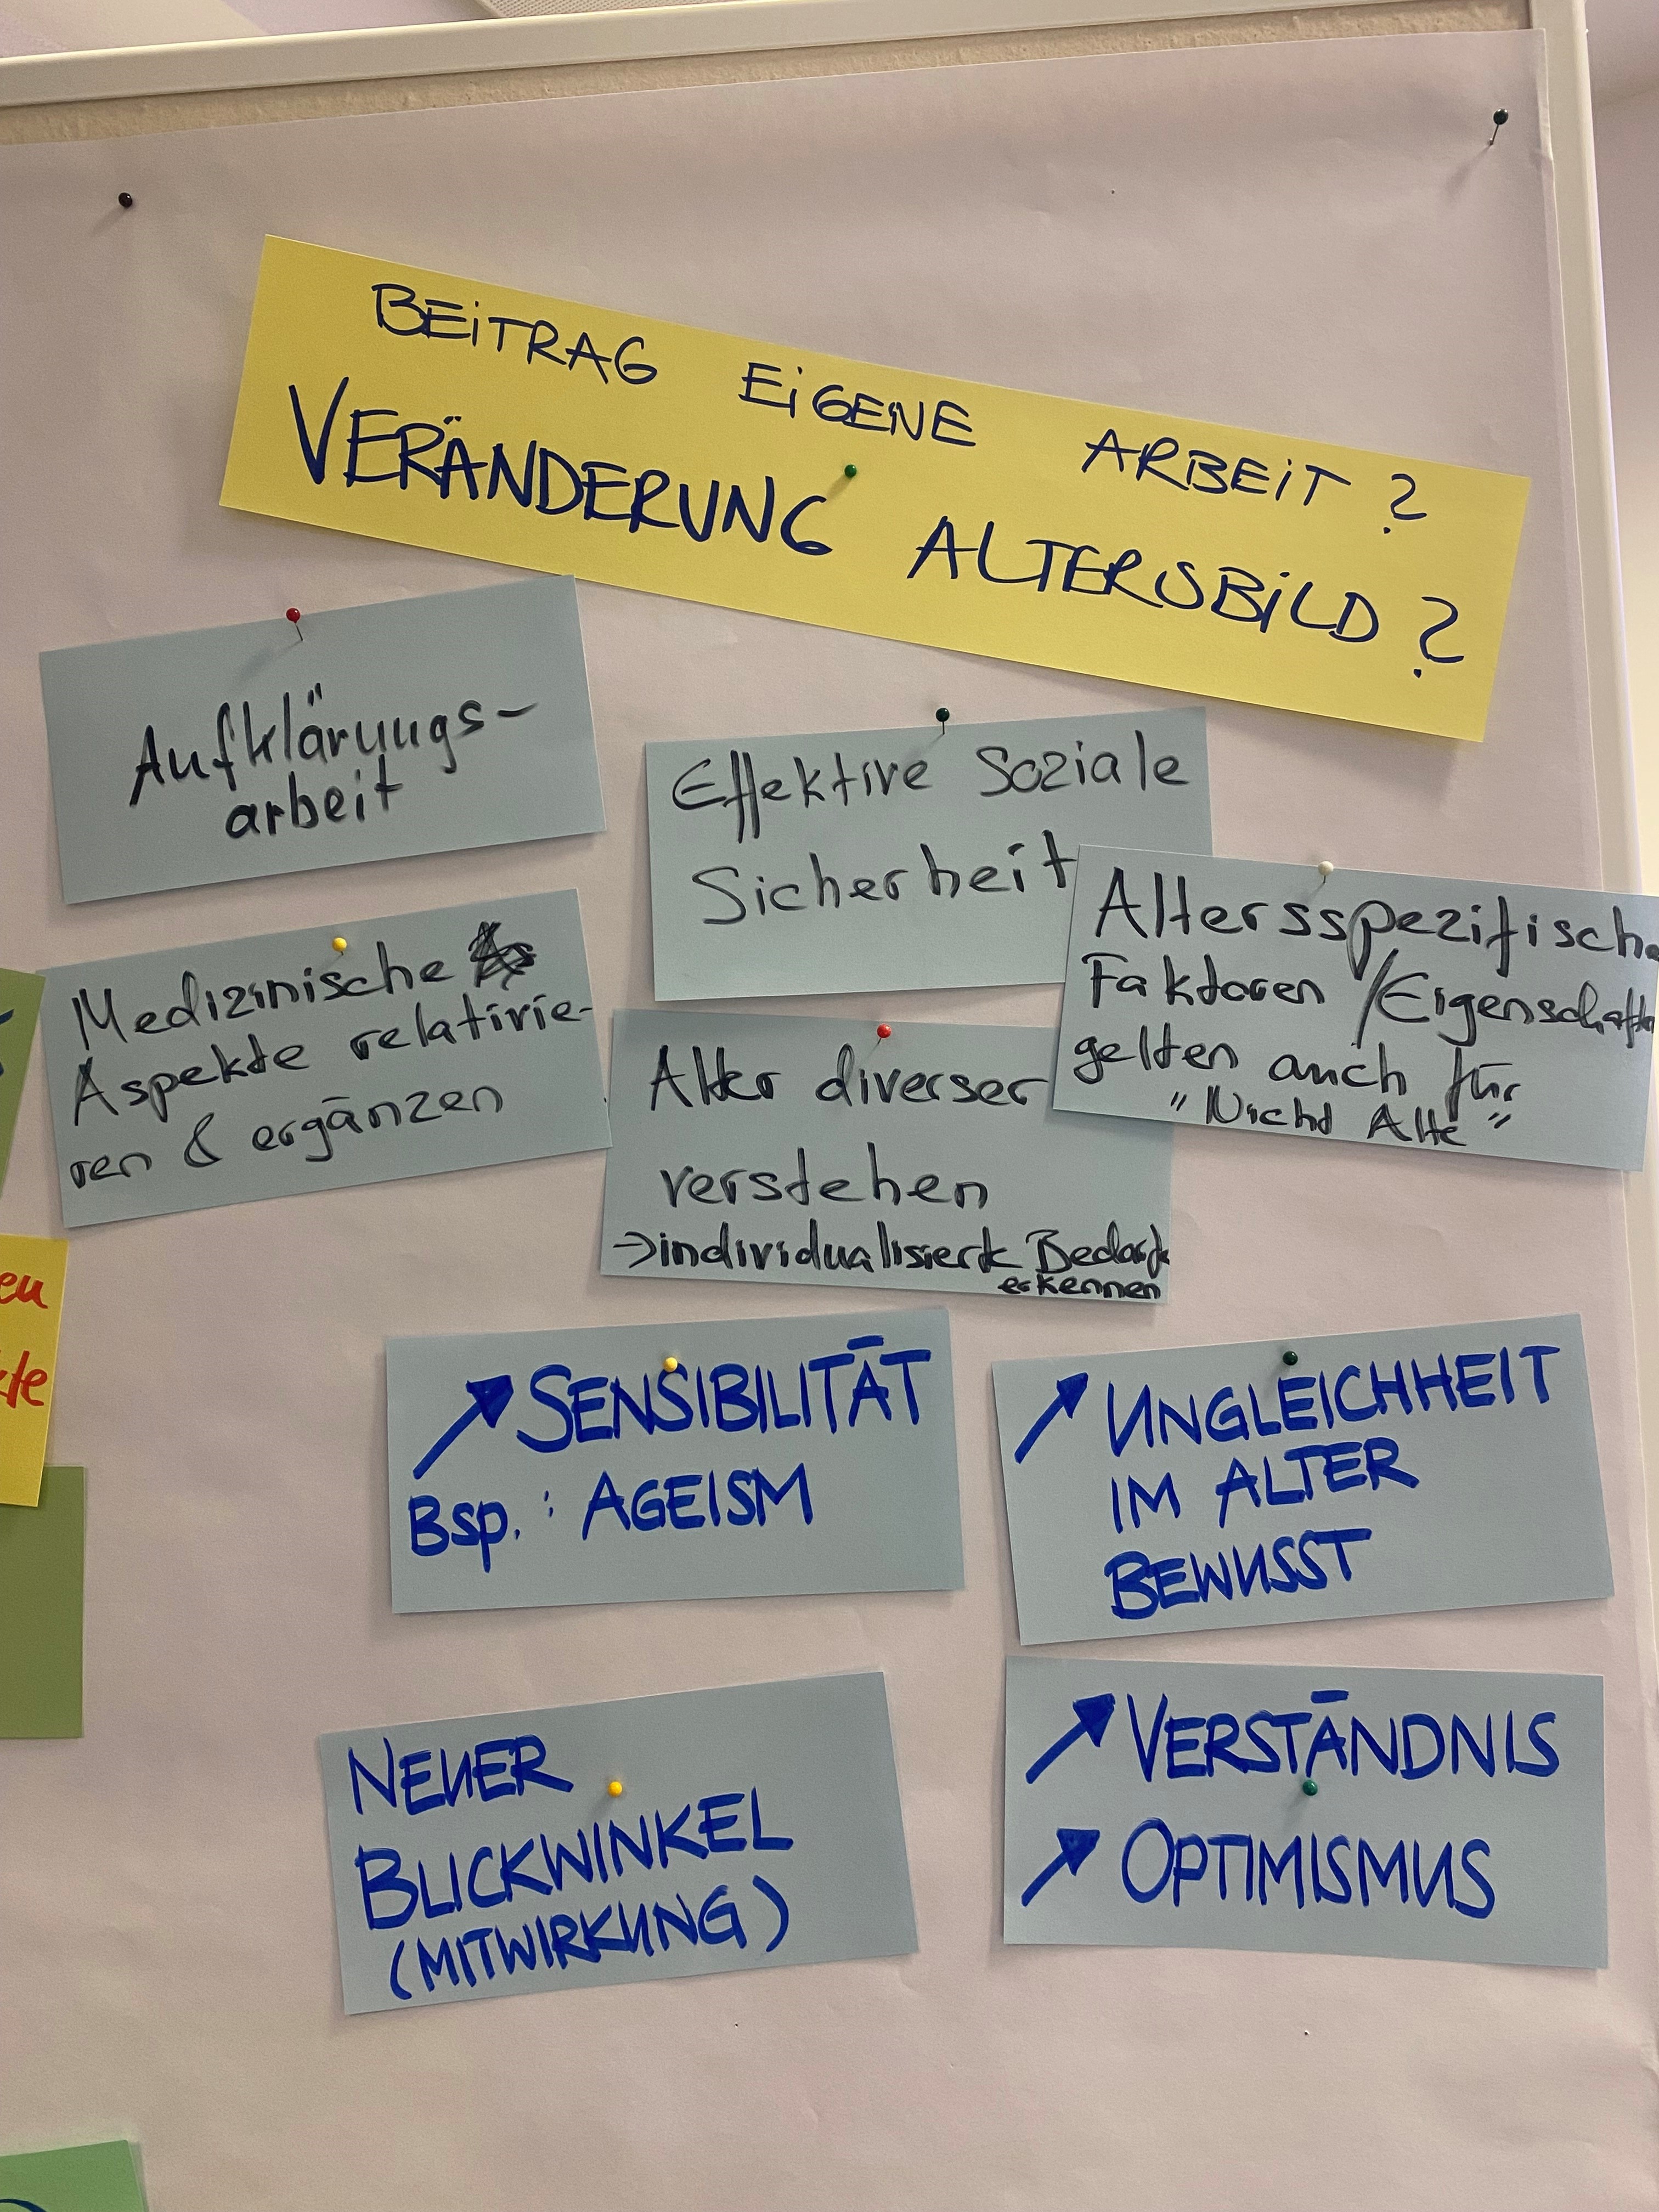 BEITRAG EIGENE ARBEIT ?
VERÄNDERUNG ALTERSBILD ?
Aufklärungs-
arbeit
Effektive Soziale
Sicherheit
Altersspezifische
Faktoren / Eigenschaften
gelten auch für
"Nicht Alte"
Medizinische
Aspekte relativie-
ren & ergänzen
Alter diverser
verstehen
→ individualisierte Bedarfe
erkennen
↗ SENSIBILITÄT
Bsp.: AGEISM
↗ UNGLEICHHEIT
IM ALTER
BEWUSST
NEUER
BLICKWINKEL
(MITWIRKUNG)
↗ VERSTÄNDNIS
↗ OPTIMISMUS